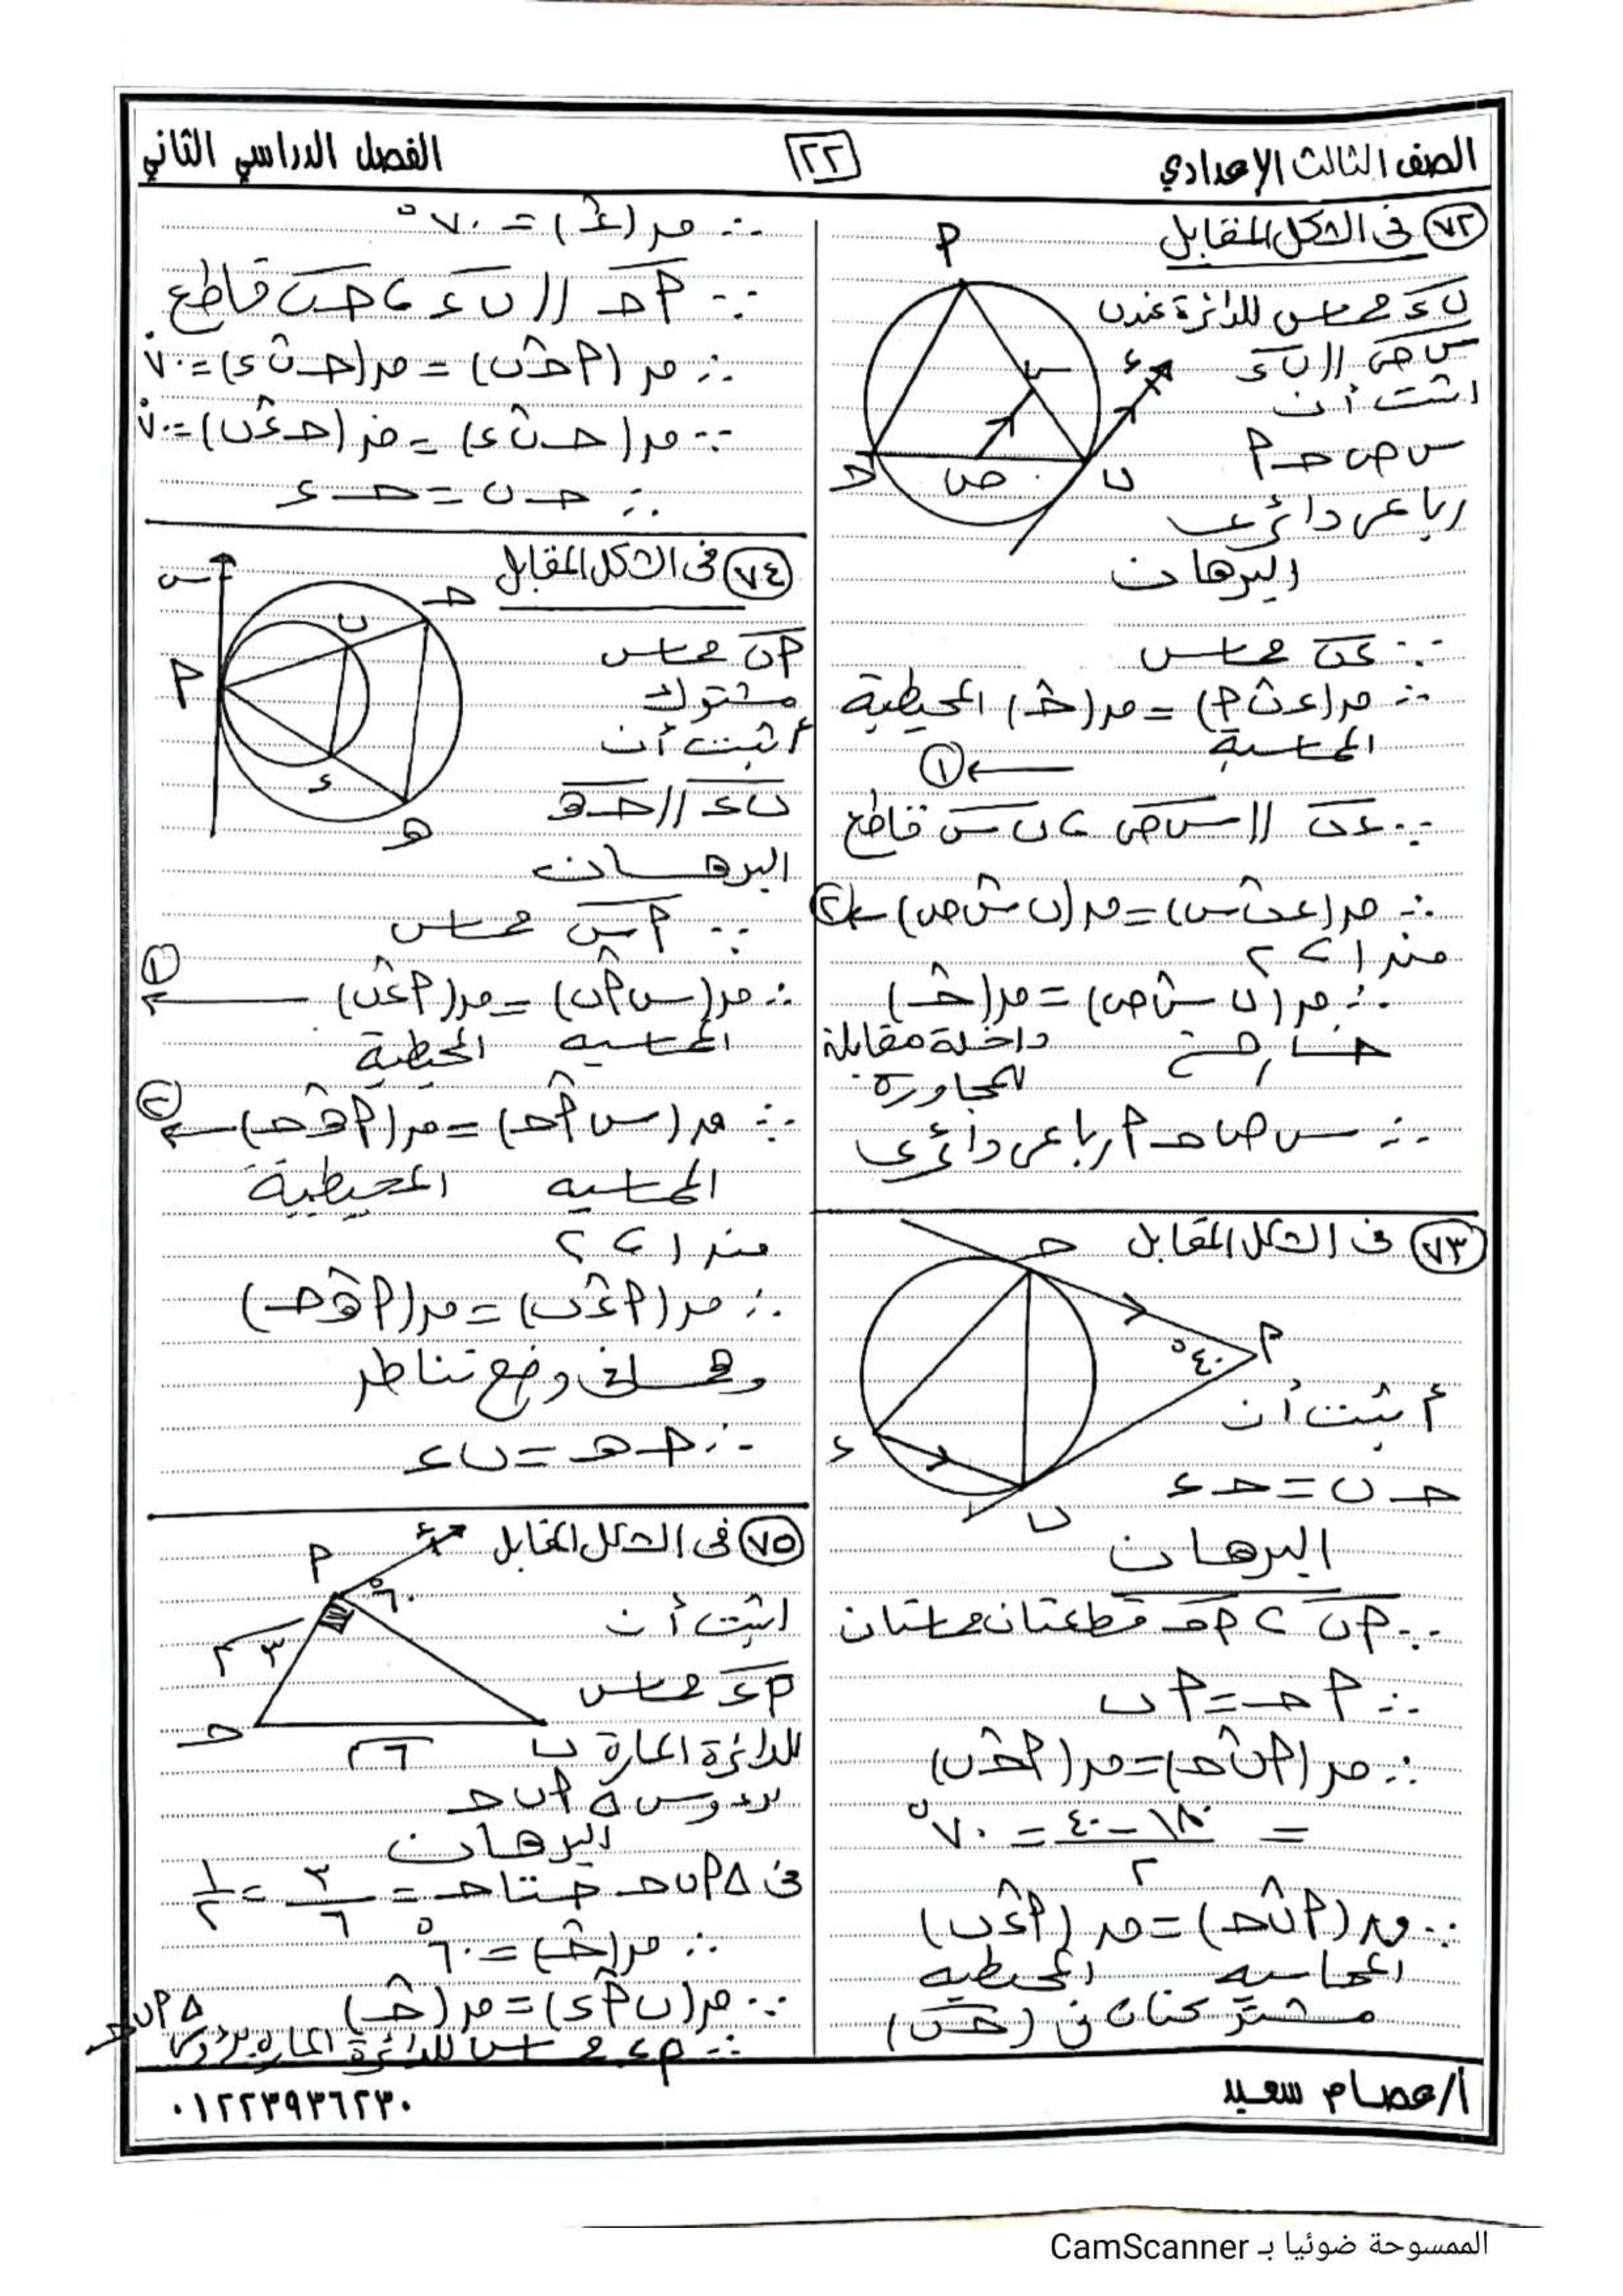 الصف الثالث الإعدادي
٢٢
الفصل الدراسي الثاني
٧٢ في الشكل المقابل
ب ء مماس للدائرة عند ب
س ص // ب ء
اثبت أن
س ص حـ م
رباعي دائري
م
س
ء
حـ
ص
ب
البرهان
∵ ء ب مماس
∴ ص(ء ب م) = ص(حـ) المحيطية
المماسية ← ١
∵ ء ب // س ص ، ب س قاطع
∴ ص(ء ب س) = ص(ب س ص) ← ٢
من ١ ، ٢
∴ ص(ب س ص) = ص(حـ)
خارجة داخلة مقابلة
للمجاورة
∴ س ص حـ م رباعي دائري
٧٣ في الشكل المقابل
حـ
م
٤٠°
ء
ب
أثبت أن
حـ ب = حـ ء
البرهان
∵ م ب ، م حـ قطعتان مماستان
∴ م حـ = م ب
∴ ص(م ب حـ) = ص(م حـ ب)
= (١٨٠ − ٤٠) / ٢ = ٧٠°
∵ ص(م ب حـ) = ص(م ء ب)
المماسية المحيطية
مشتركتان في (حـ ب)
∴ ص(ء) = ٧٠°
∵ م حـ // ب ء ، حـ ب قاطع
∴ ص(م حـ ب) = ص(حـ ب ء) = ٧٠°
∵ ص(حـ ب ء) = ص(حـ ء ب) = ٧٠°
∴ حـ ب = حـ ء
٧٤ في الشكل المقابل
س
حـ
ب
م
ء
هـ
م ب مماس
مشترك
أثبت أن
ب ء // حـ هـ
البرهان
∵ م س مماس
∴ ص(س م ب) = ص(م ء ب) ← ١
المماسية المحيطية
∵ ص(س م حـ) = ص(م هـ حـ) ← ٢
المماسية المحيطية
من ١ ، ٢
∴ ص(م ء ب) = ص(م هـ حـ)
وهما في وضع تناظر
∴ حـ هـ = ب ء
٧٥ في الشكل المقابل
م
ء
٦٠°
٣ م
حـ
٦ م
ب
اثبت أن
م ء مماس
للدائرة المارة
برؤوس △ م ب حـ
البرهان
في △ م ب حـ جتا حـ = ٣/٦ = ١/٢
∴ ص(حـ) = ٦٠°
∵ ص(ب م ء) = ص(حـ)
∴ م ء مماس للدائرة المارة برؤوس △ م ب حـ
أ/عصام سعيد
٠١٢٢٣٩٣٦٢٣٠
الممسوحة ضوئيا بـ CamScanner